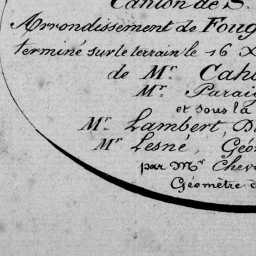 Canton de S.
Arrondissement de Foug
terminé sur le terrain le 16 X
de Mr. Cah
Mr. Parai
et sous la
Mr. Lambert, D
Mr. Lesné, Géo
par Mr Chev
Géomètre